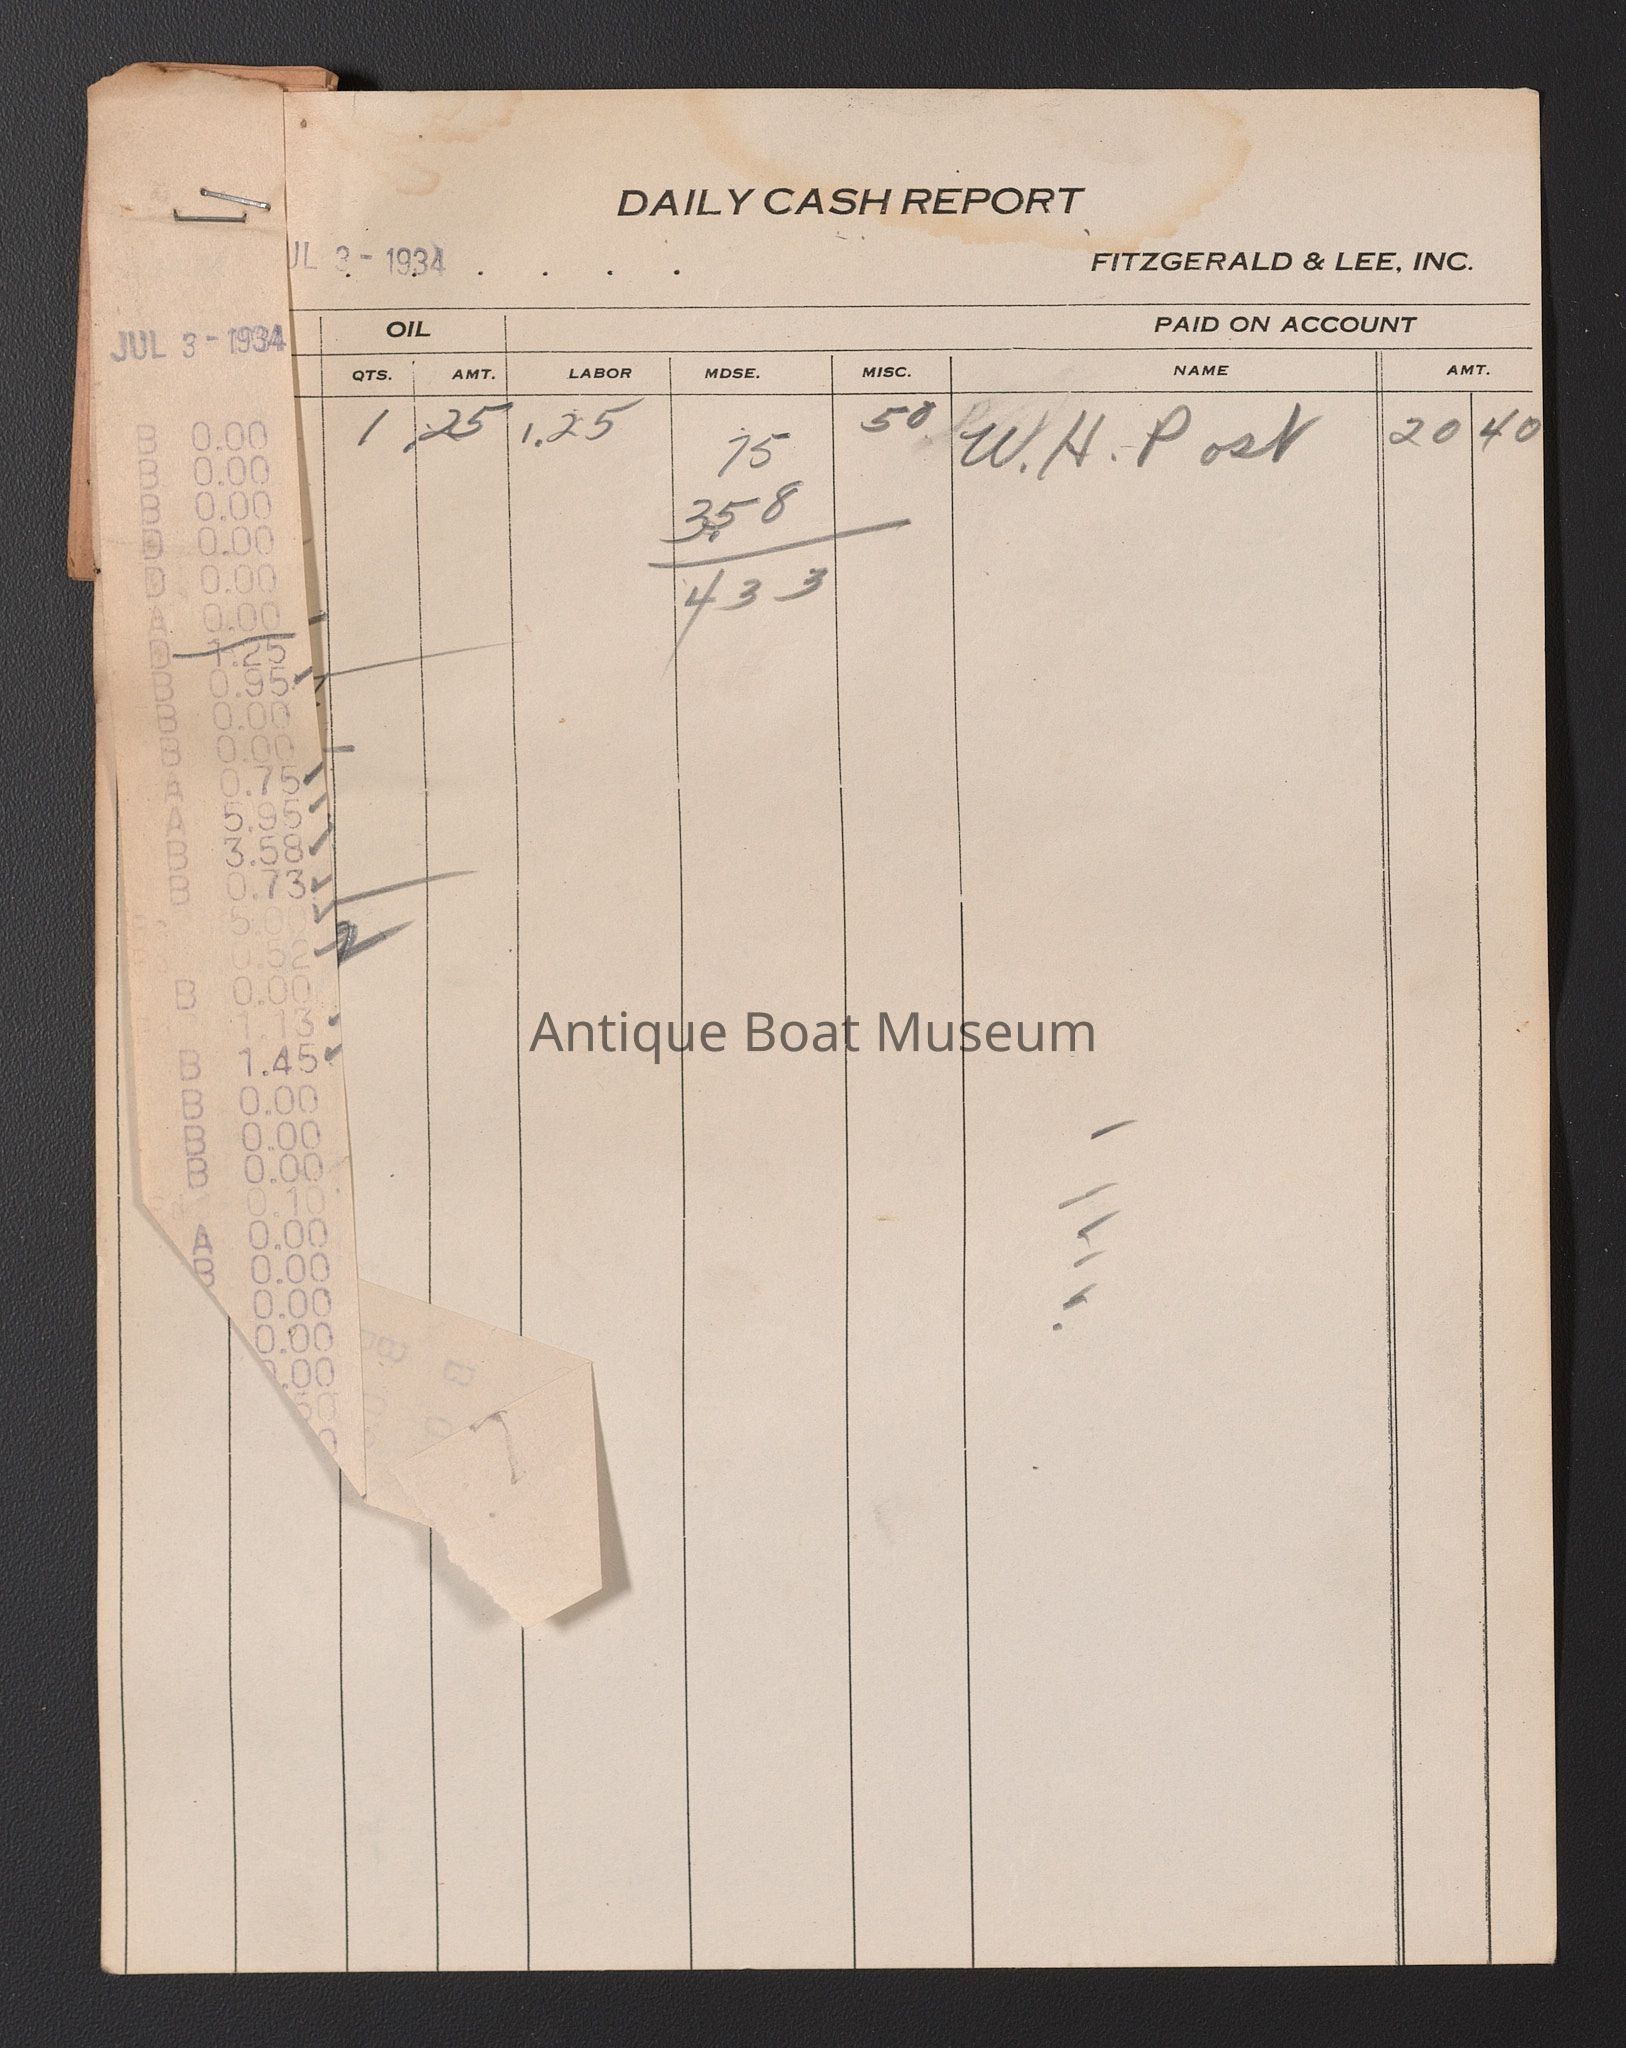 DAILY CASH REPORT
UL 3 - 1934
FITZGERALD & LEE, INC.
OIL
PAID ON ACCOUNT
QTS. AMT. LABOR MDSE. MISC. NAME AMT.
1 .25 1.25 75 50 W. H. Post 20 40
3.58
4 33
JUL 3 - 1934
B 0.00
B 0.00
B 0.00
0.00
0.00
A 0.00
1.25
B 0.95
B 0.00
B 0.00
A 0.75
A 5.95
B 3.58
B 0.73
5.00
0.52
B 0.00
1.13
B 1.45
B 0.00
B 0.00
B 0.00
0.10
A 0.00
B 0.00
0.00
0.00
.00
Antique Boat Museum
B B
7